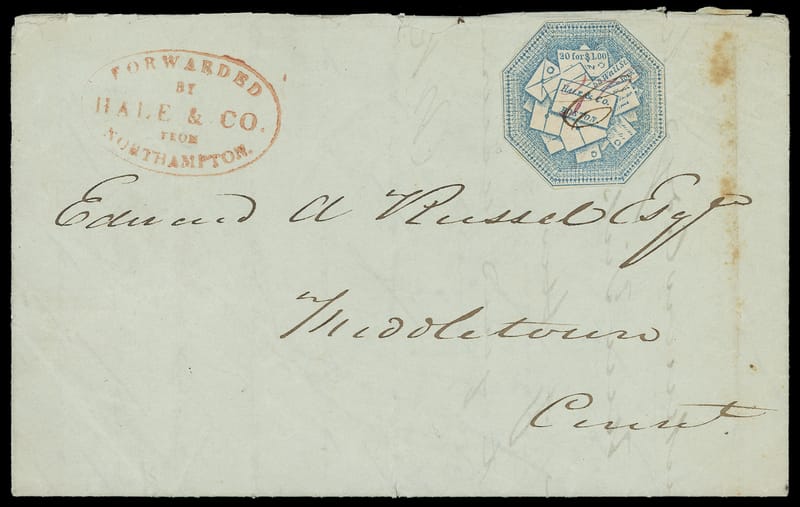 FORWARDED
BY
HALE & CO.
FROM
NORTHAMPTON.
20 for $1.00
HALE & CO.
BOSTON.
Edward A Russel Esqr
Middletown
Connt.